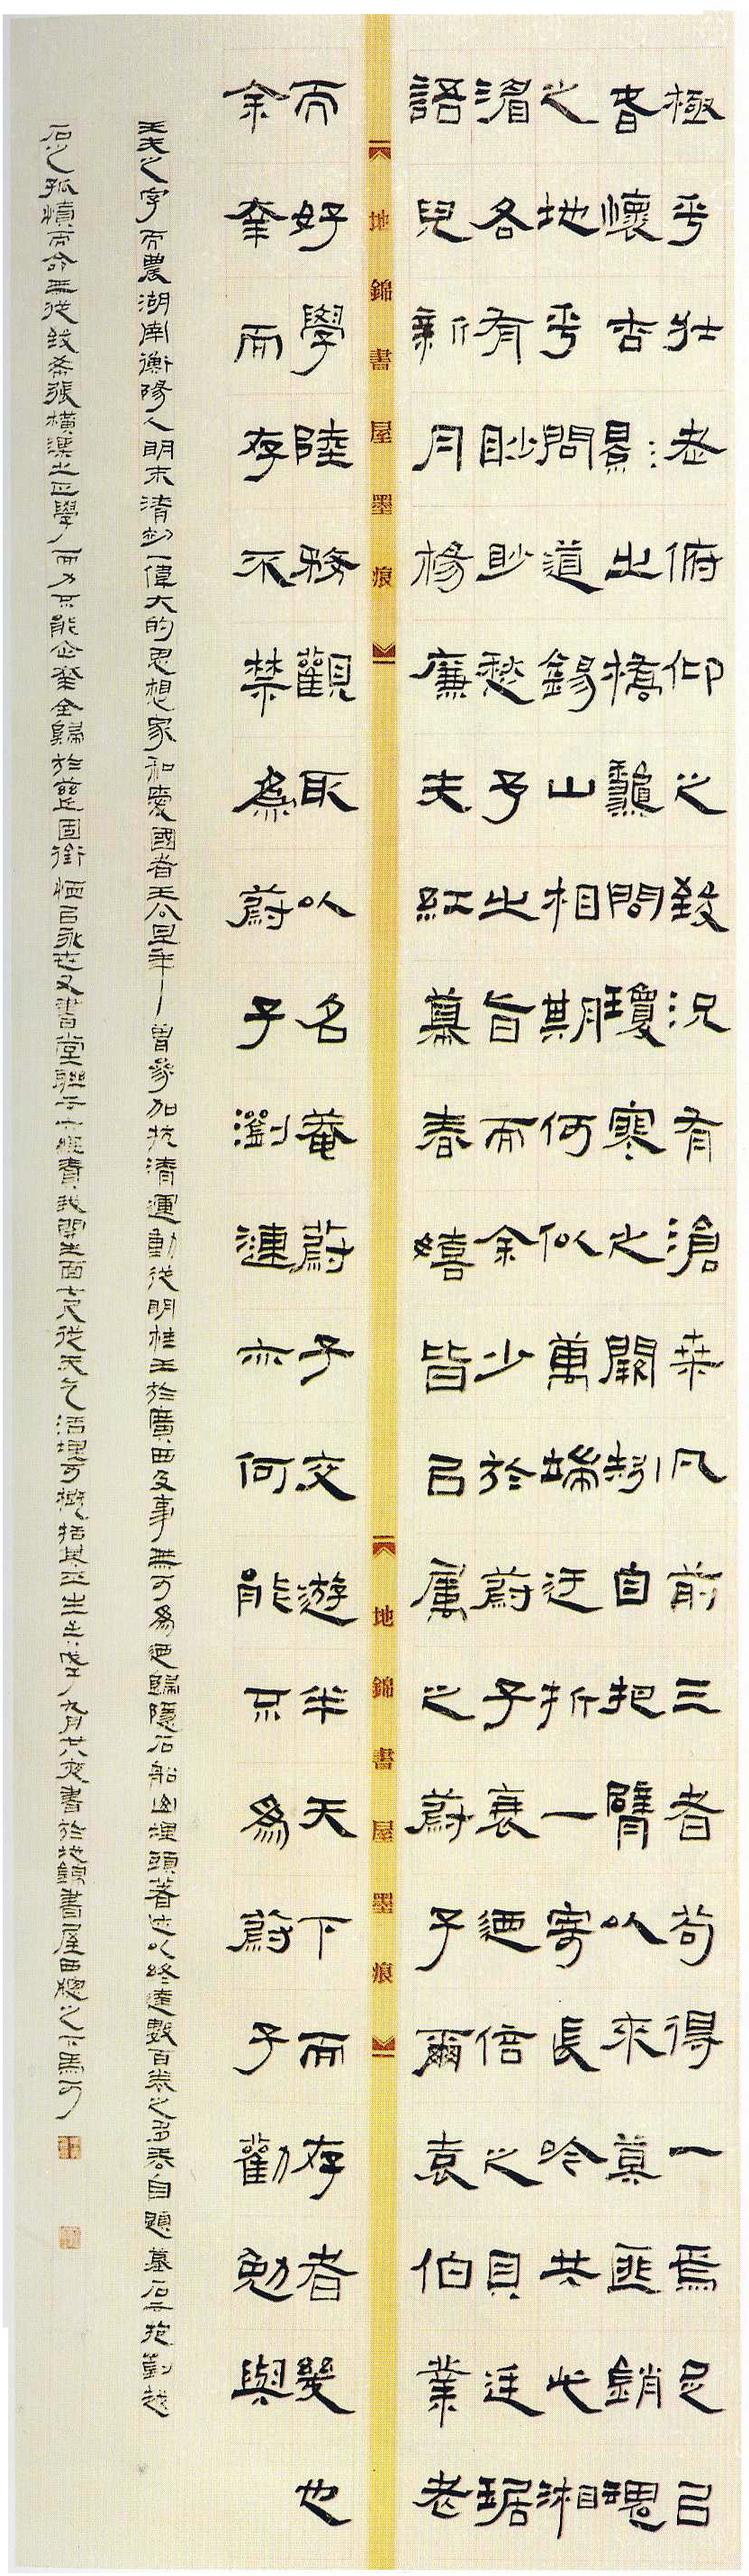 極乎壯老俯仰之致況有滄桑凡前三者苟得一焉足以
懷古出橋問瓊寒之闕自把臂以來莫匪銷魂
之地乎問道錫山相期何似萬端迂折一寄長吟共此湘
湄各有眇眇愁予之旨而余少於蔚子衰迺倍之貝廷琚
語兒新月楊廉夫紅幕春嬉皆以屬之蔚子爾袁伯業老
地錦書屋墨痕
地錦書屋墨痕
而好學陸務觀取以名菴蔚子交遊半天下而存者幾也
余耄而存不禁為蔚子瀏漣亦何能不為蔚子勸勉與
王夫之字而農湖南衡陽人明末清初一偉大的思想家和愛國者王公早年曾參加抗清運動從明桂王於廣西及事無可為迺歸隱石船山埋頭著述以終達數百卷之多嘗自題墓石云抱劉越
石之孤憤而命無從致希張橫渠之正學而力不能企幸全歸於茲丘固銜恤以永世又書堂聯云六經責我開生面七尺從天乞活埋可概括其平生矣九月廿六夜書於地錦書屋西牕之下馬可